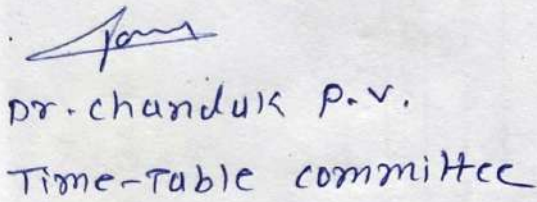 Dr. chanduk P.V.
Time-Table committee